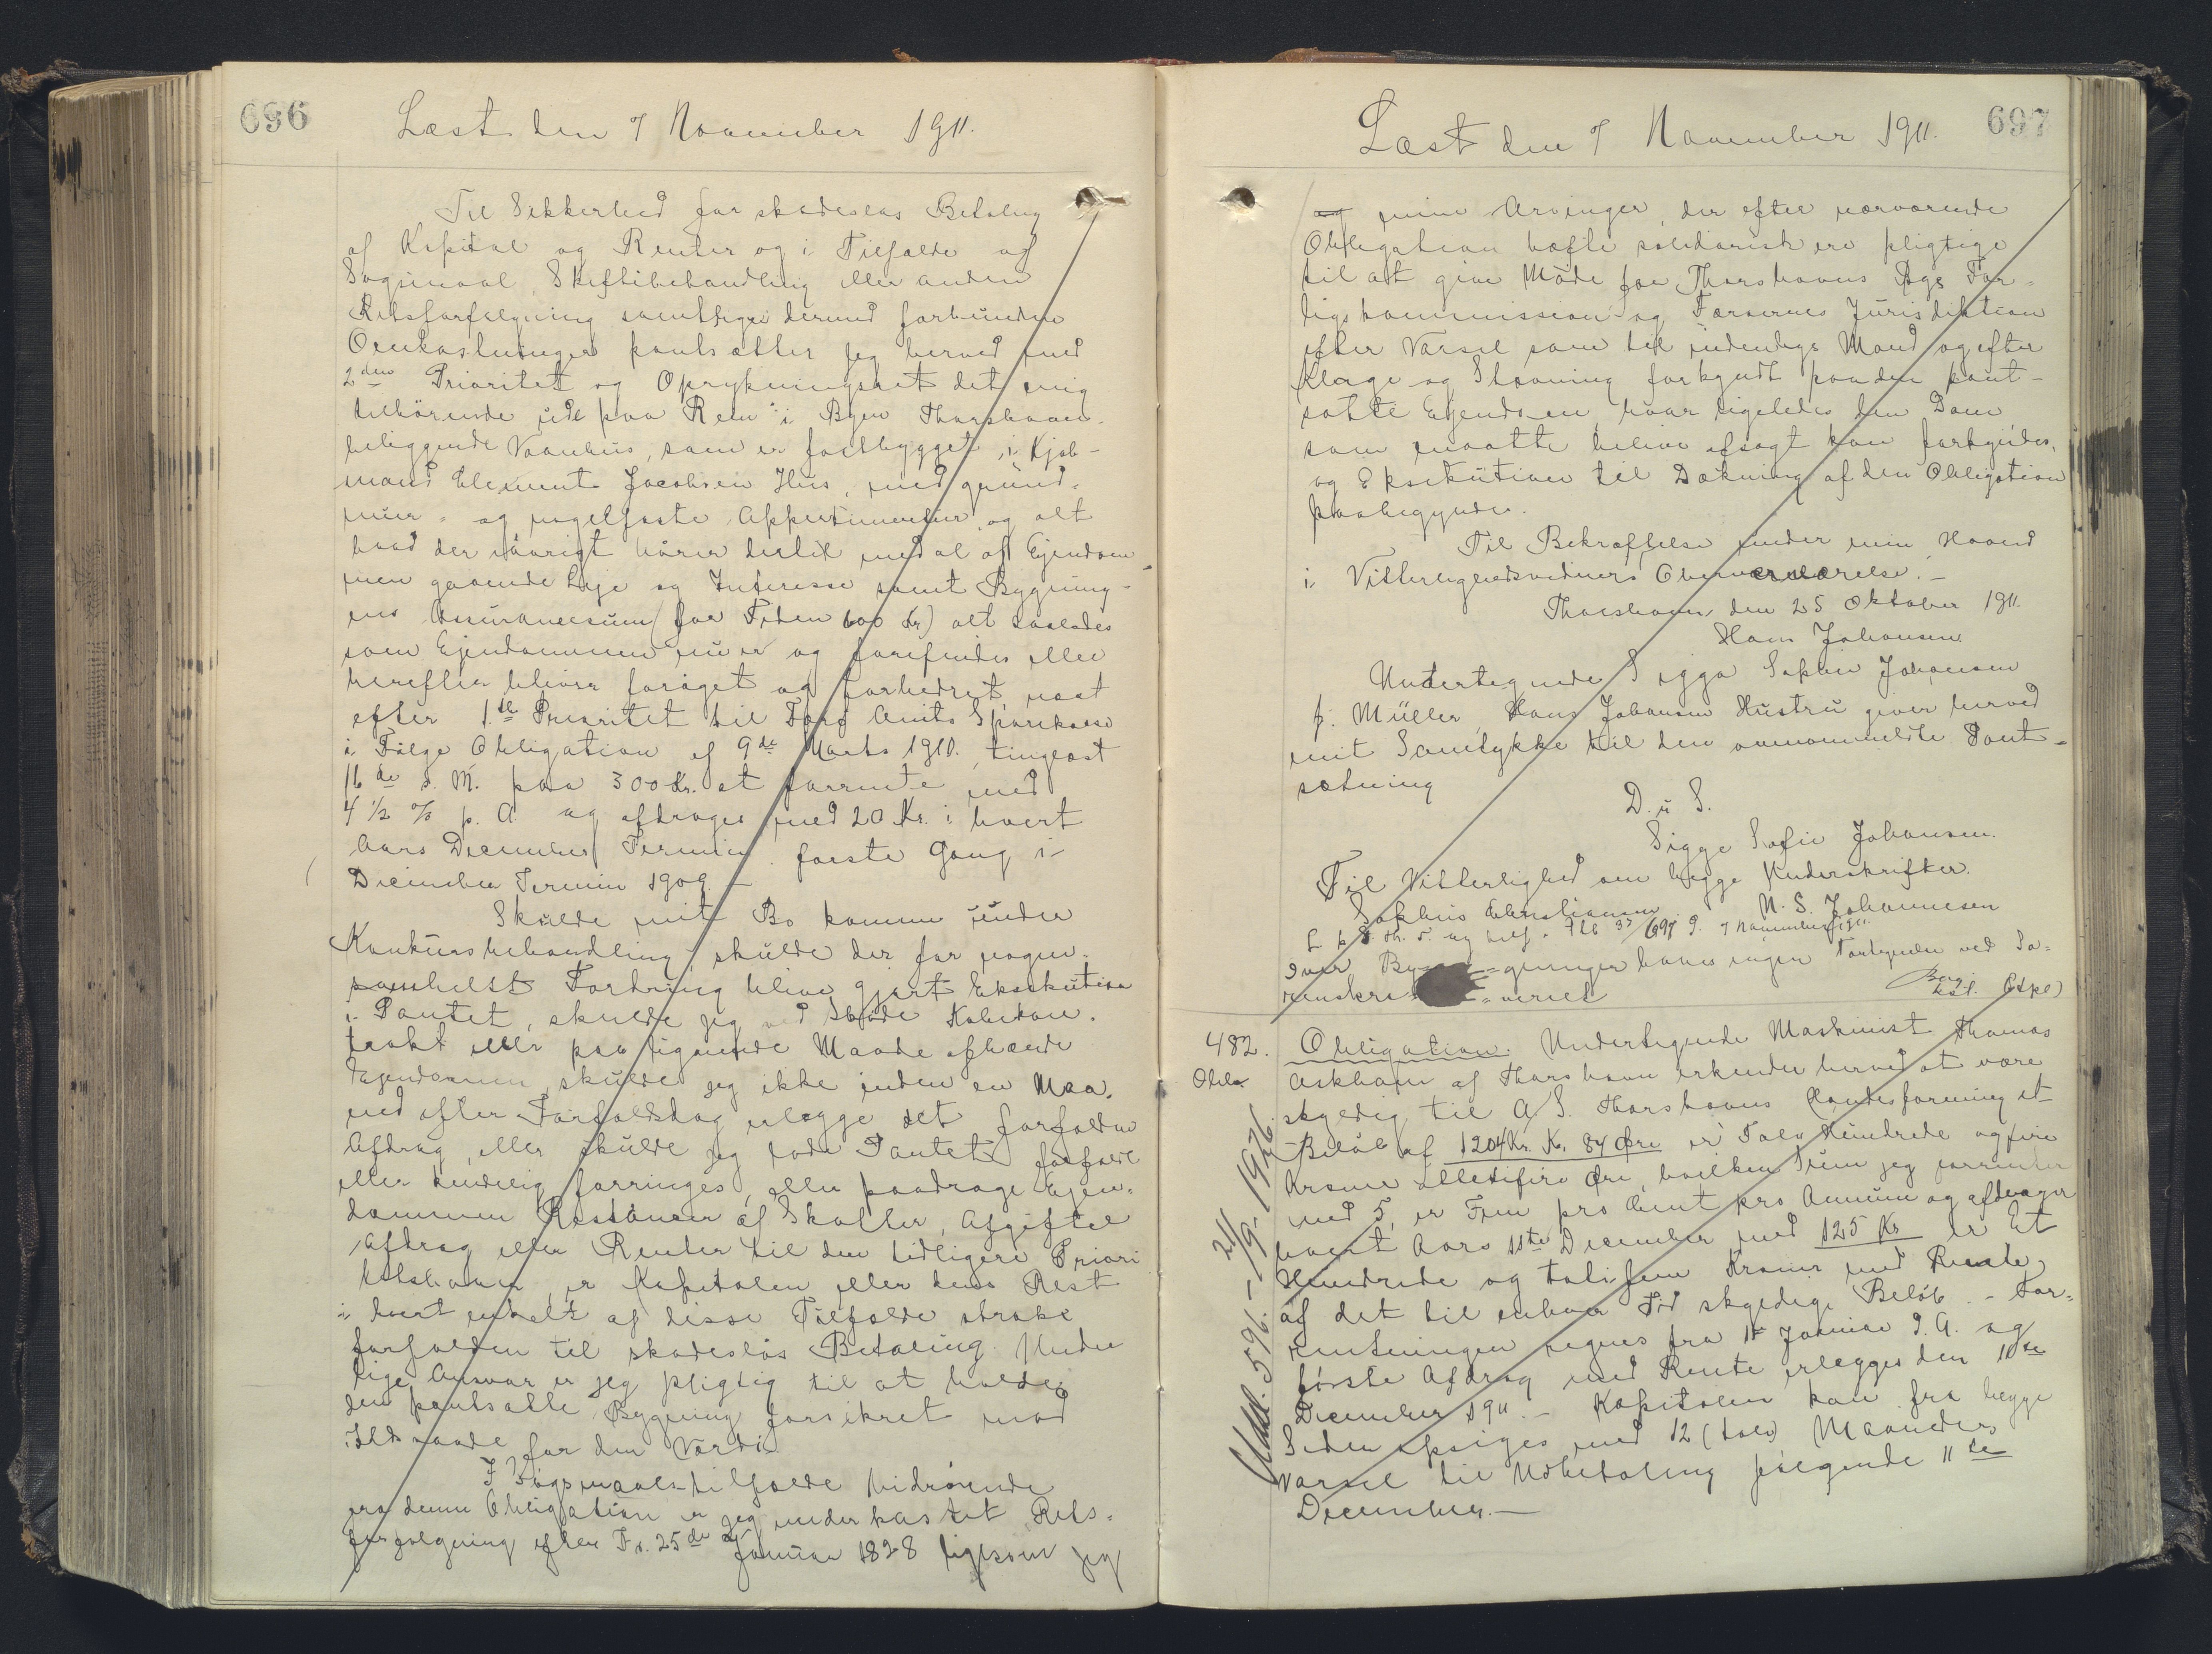 696
Læst den 7 November 1911.
Til Sikkerhed for skadesløs Betaling
af Kapital og Renter og i Tilfælde af
Søgsmaal, Skiftebehandling eller anden
Retsforfølgning samtlige dermed forbundne
Omkostninger pantsætter jeg herved med
2den Prioritet og Oprykningsret det mig
tilhörende ude paa Rein i Byen Thorshavn
beliggende Vaanhus, som er fastbygget i Kjöb-
mand Clement Jacobsens Hus, med grund-
muur- og nagelfaste Appertinentier og alt
hvad der iövrigt hörer dertil med al af Ejendom-
men gaaende Leje og Interesse samt Bygning-
ens Assurancesum (for Tiden 600 Kr) alt saaledes
som Ejendommen nu er og forefindes eller
herefter bliver foröget og forbedret næst
efter 1ste Prioritet til Færø Amts Sparekasse
i Fölge Obligation af 9de Marts 1910, tinglæst
16de s. M. paa 300 Kr. at forrente med
4 1/2 % p. A og afdrages med 20 Kr. i hvert
Aars December Termin første Gang i
December Termin 1909. —
Skulde mit Bo komme under
Konkursbehandling, skulde der for nogen-
somhelst Fordring blive gjort Eksekution
i Pantet, skulde jeg ved Skøde Købekon-
trakt eller paa lignende Maade afhænde
Ejendommen, skulde jeg ikke inden en Maa-
ned efter Forfaldsdag erlægge det forfaldne
Afdrag, eller skulde jeg lade Pantet forfalde
eller kendelig forringes, eller paadrage Ejen-
dommen Restancer af Skatter, Afgifter
Afdrag eller Renter til den tidligere Priori
tetshaver, er Kapitalen eller dens Rest
i hvert enkelt af disse Tilfælde straks
forfalden til skadeslös Betaling. Under
lige Ansvar er jeg pligtig til at holde
den pantsatte Bygning forsikret mod
Ildsvaade for den Værdi
I Sögsmaalstilfælde vedrörende
denne Obligation er jeg underkastet Rets-
forfølgning efter Fr. 25de Januar 1828 ligesom jeg
697
Læst den 7 November 1911.
og mine Arvinger, der efter nærværende
Obligation hæfte solidarisk ere pligtige
til at give Möde for Thorshavns Bys For-
ligskommission og Færøernes Jurisdiktion
efter Varsel som til indenbys Mand og efter
Klage og Stævning forkyndt paa den pant-
satte Ejendom, hvor ligeledes den Dom
som maatte blive afsagt kan forkyndes,
og Eksekution til Dækning af den Obligation
paabegyndes.
Til Bekræftelse under min Haand
i Vitterlighedsvidners Overværelse. —
Thorshavn, den 25 Oktober 1911.
Hans Johansen
Undertegnede Sigga Sophie Johansen
f. Müller, Hans Johansens Hustru giver herved
mit Samtykke til den ovenommeldte Pant-
sætning
D. u S.
Sigge Sofie Johansen.
Til Vitterlighed om begge Underskrifter.
Sophus Christiansen N. S. Johannesen
7 November 1911.
over Byg -gninger haves ingen
482. Obligation. Undertegnede Maskinist Thomas
Obl. Askham af Thorshavn erkender herved at være
skyldig til A/S. Thorshavns Handelsforening et
Belöb af 1204 Kr. 84 Øre er Tolv Hundrede og fire
Kroner ottetifire Øre, hvilken Sum jeg forrenter
med 5, er Fem pro Cent pro Annum og afdrager
hvert Aars 11te December med 125 Kr er Et
Hundrede og tolvfem Kroner med Rente
af det til enhver Tid skyldige Belöb. - For-
rentningen regnes fra 1te Januar d. A. og
förste Afdrag med Rente erlægges den 11te
December 1911. — Kapitalen kan fra begge
Sider opsiges med 12 (tolv) Maaneders
Varsel til Udbetaling fölgende 11te
December. —